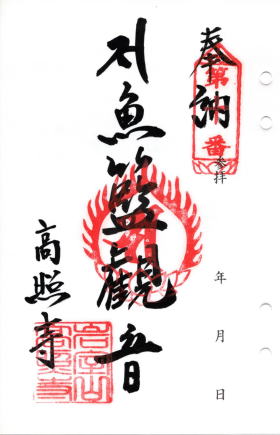 奉納
第
番
参拝
年 月 日
魚籃觀音
高照寺